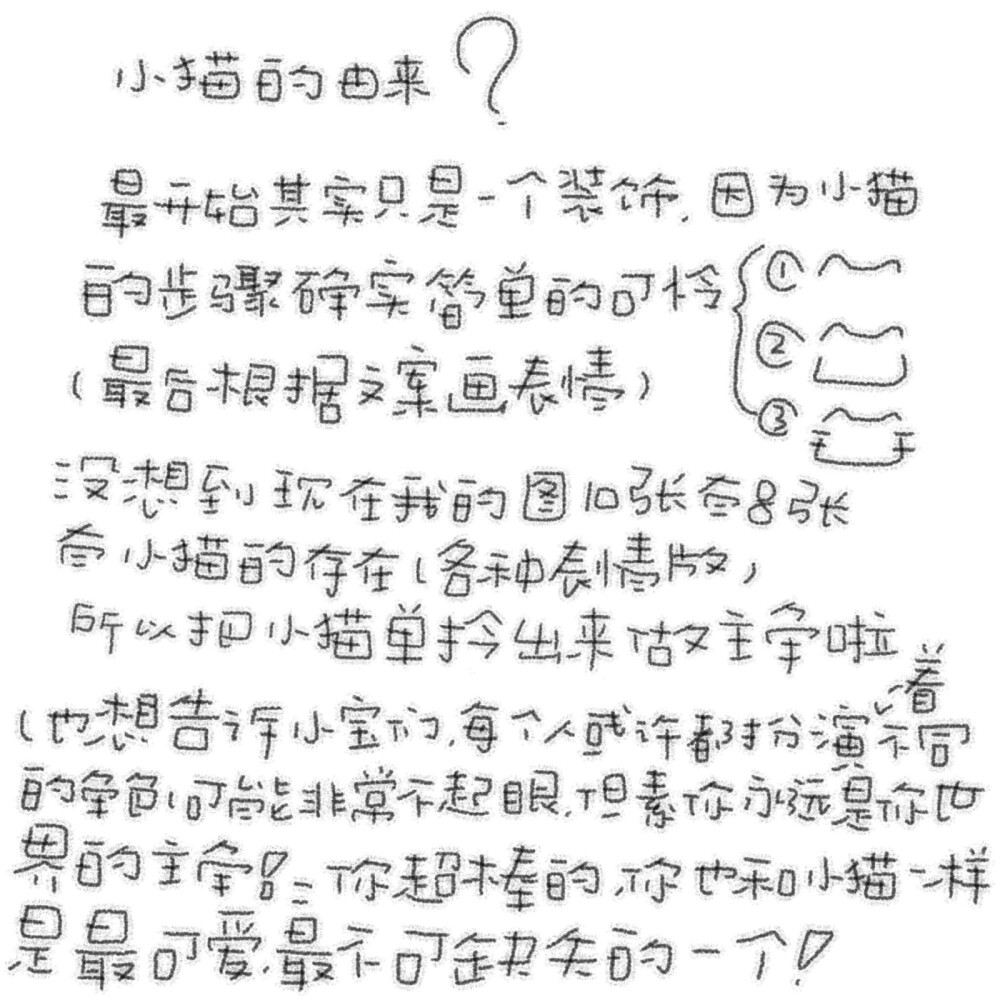 小猫的由来?
最开始其实只是一个装饰,因为小猫
的步骤确实简单的可怜{① ② ③
(最后根据文案画表情)
没想到现在我的图10张有8张
有小猫的存在(各种表情版)
所以把小猫单拎出来做主角啦
(也想告诉小宝们,每个人或许都扮演着不同
的角色,可能非常不起眼,但素你永远是你世
界的主角!:你超棒的,你也和小猫一样
是最可爱,最不可缺失的一个!